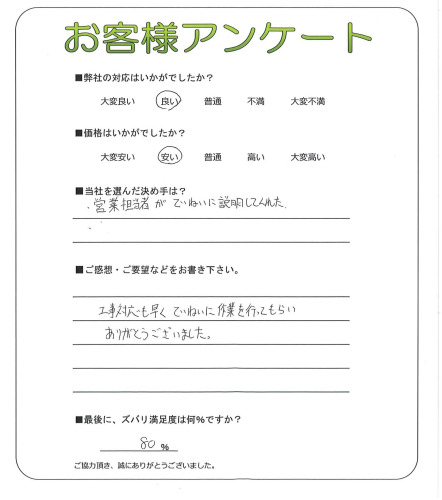 お客様アンケート
■弊社の対応はいかがでしたか？
大変良い 良い 普通 不満 大変不満
■価格はいかがでしたか？
大変安い 安い 普通 高い 大変高い
■当社を選んだ決め手は？
・営業担当者がていねいに説明してくれた
■ご感想・ご要望などをお書き下さい。
工事対応も早くていねいに作業を行ってもらい
ありがとうございました。
■最後に、ズバリ満足度は何%ですか？
80 %
ご協力頂き、誠にありがとうございました。